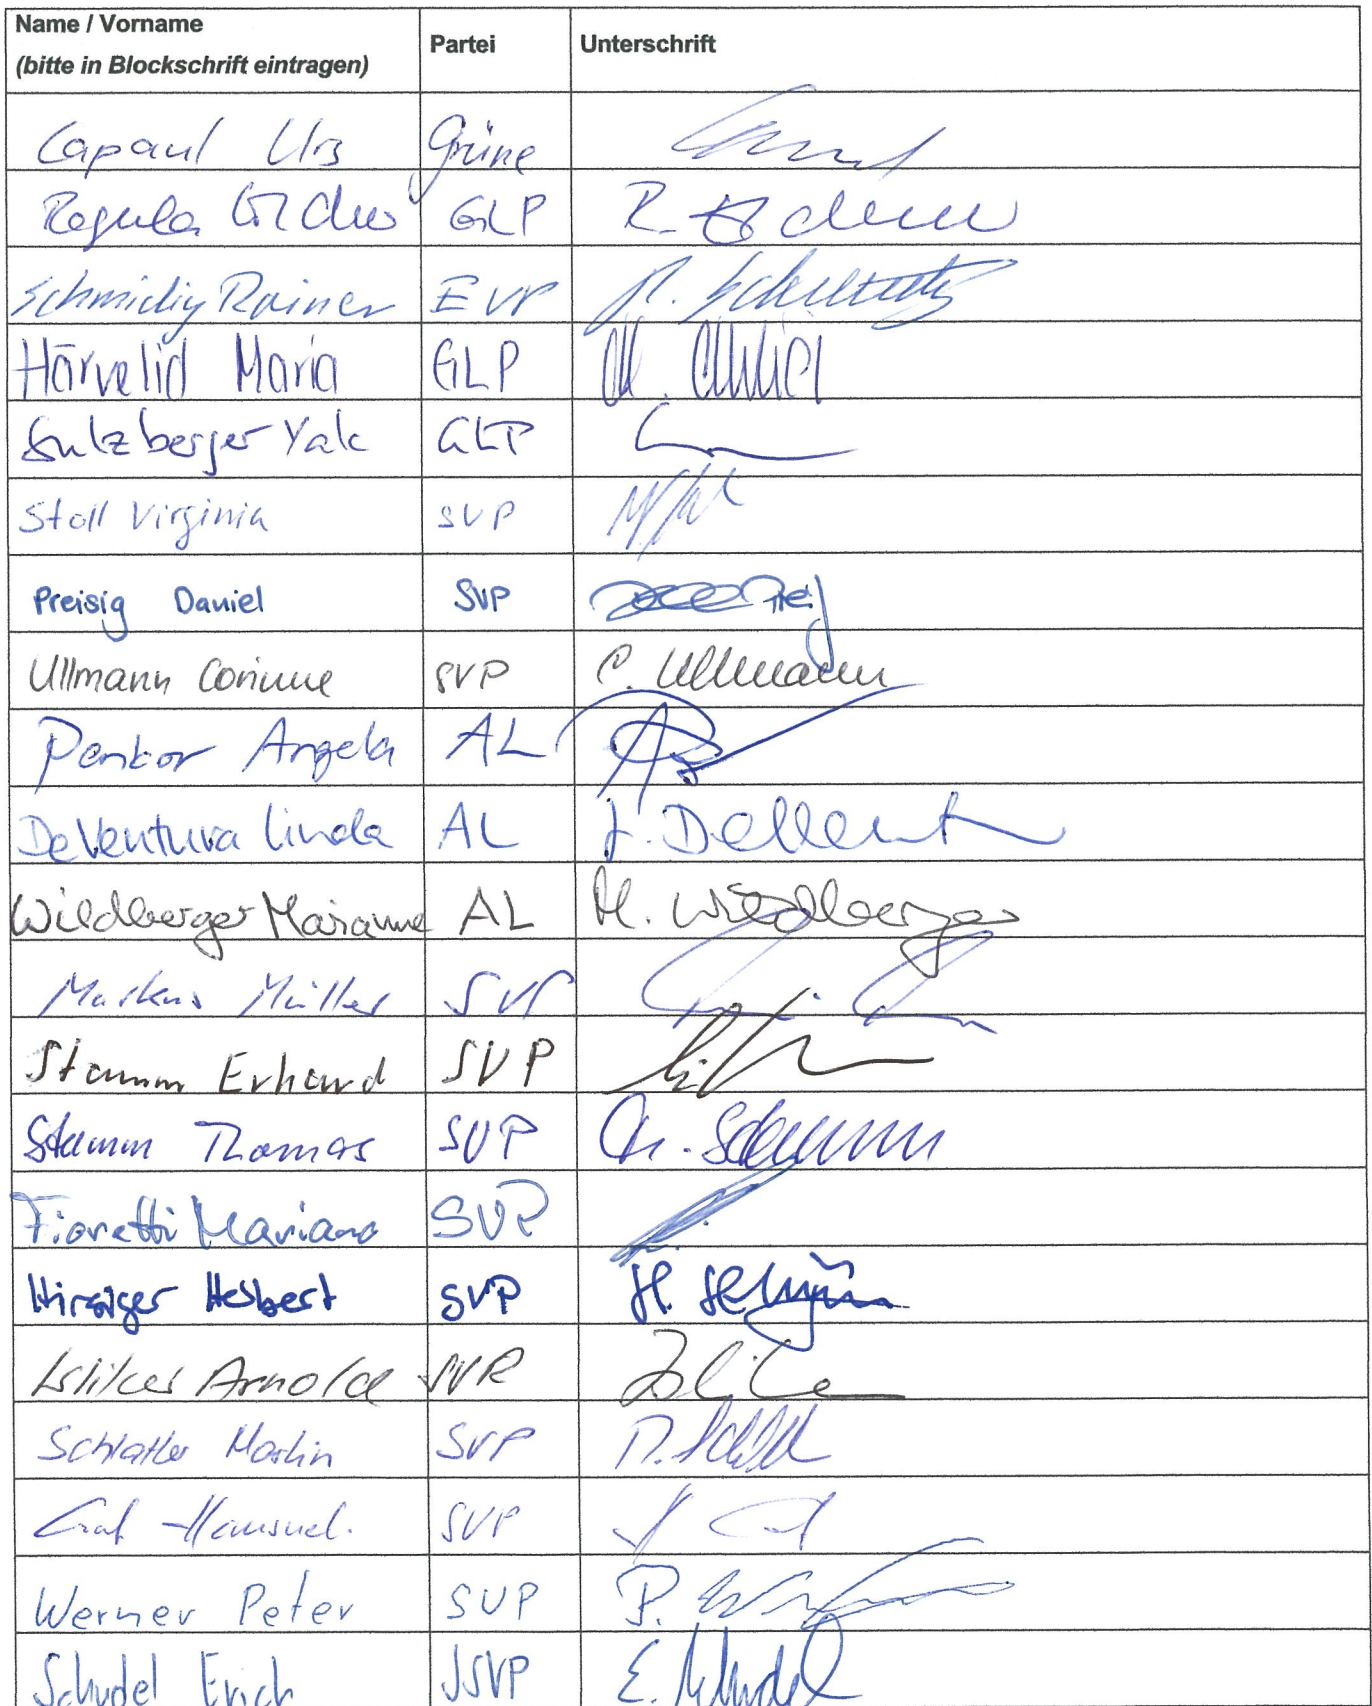 Name / Vorname Partei Unterschrift
(bitte in Blockschrift eintragen)
Capaul Urs Grüne
Regula GLP R.
Schmidig Rainer EVP R. Schmidig
Härvelid Maria GLP M.
Sulzberger Yak GLP
Stoll Virginia SVP
Preisig Daniel SVP
Ullmann Corinne SVP C. Ullmann
Penkov Angela AL
De Ventura Linda AL L.
Wildberger Marianne AL M. Wildberger
Markus Müller SVP
Stamm Erhard SVP
Stamm Thomas SVP Th. Stamm
Fioretti Mariano SVP
Hirsiger Herbert SVP H.
Arnold SVP
Schlatter Martin SVP M.
Graf Hansueli SVP
Werner Peter SVP P.
Schudel Erich JSVP E. Schudel